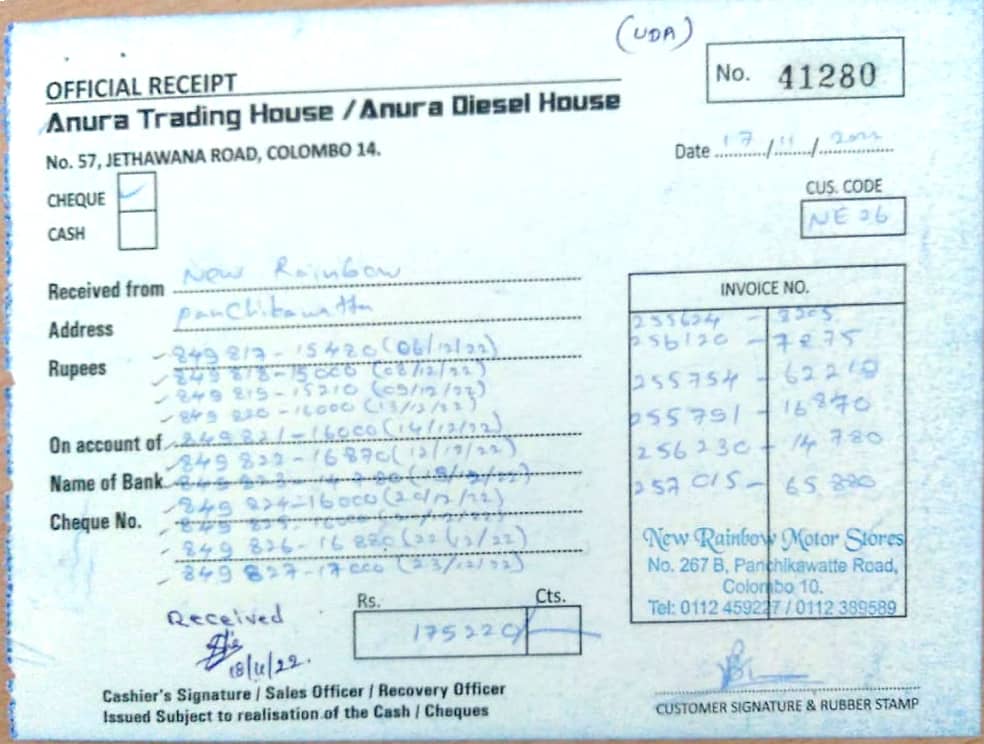 (UDA)
OFFICIAL RECEIPT
No. 41280
Anura Trading House / Anura Diesel House
No. 57, JETHAWANA ROAD, COLOMBO 14.
Date 17/11/2022
CHEQUE
CUS. CODE
CASH
NE 26
Received from New Rainbow
INVOICE NO.
Address Panchikawatta
255624 -
256120 - 7875
Rupees 849 817 - 15480 (06/12/22)
849 818 - 15000 (08/12/22)
849 819 - 15210 (09/12/22)
255754 - 62210
849 820 - 16000 (13/12/22)
255791 - 16870
On account of 849 821 - 16000 (14/12/22)
256230 - 14780
849 822 - 16870
Name of Bank 849 823 - 14780
257015 - 65880
849 824 - 16000 (20/12/22)
Cheque No. 849 825 - 16000
849 826 - 16880 (22/12/22)
849 827 - 17000 (23/12/22)
New Rainbow Motor Stores
No. 267 B, Panchikawatte Road,
Colombo 10.
Tel: 0112 459227 / 0112 389589
Rs. Cts.
Received
175220/
18/11/22.
Cashier's Signature / Sales Officer / Recovery Officer
Issued Subject to realisation of the Cash / Cheques
CUSTOMER SIGNATURE & RUBBER STAMP